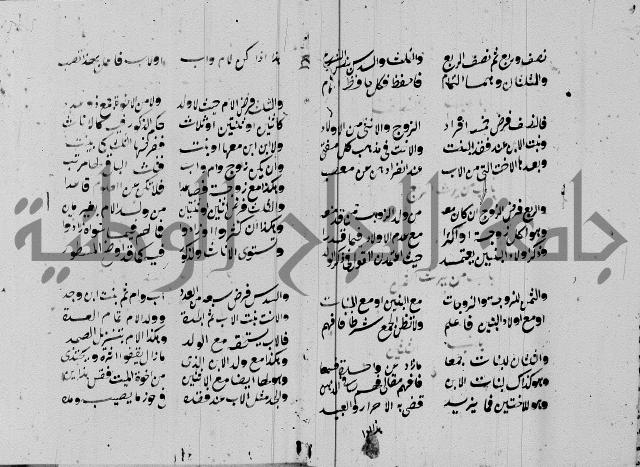 نصف وربع ثم نصف الربع والثلث والسدس بنص الشرع
والثلثان وهما التمام فاحفظ فكل حافظ امام
فالنصف فرض خمسة افراد الزوج والانثى من الاولاد
وبنت الابن عند فقد البنت والاخت في مذهب كل مفتي
وبعدها الاخت التي من الاب عند انفرادهن عن معصب
باب من يرث الربع
والربع فرض الزوج ان كان معه من ولد الزوجة من قد منعه
وهو لكل زوجة او اكثرا مع عدم الاولاد فيما قدرا
وذكر اولاد البنين يعتمد حيث اعتمدنا القول في ذكر الولد
باب من يرث الثمن
والثمن للزوجة والزوجات مع البنين او مع البنات
او مع اولاد البنين فاعلم ولا تظن الجمع شرطا فافهم
والثلثان للبنات جمعا ما زاد عن واحدة فسمعا
وهو كذاك لبنات الابن فافهم مقالي فهم صافي الذهن
وهو للاختين فما يزيد قضى به الاحرار والعبيد
هذا اذا كن لام واب او لاب فاعمل بهذا تصب
والثلث فرض الام حيث لا ولد ولا من الاخوة جمع ذو عدد
كاثنين او ثنتين او ثلاث حكم الذكور فيه كالاناث
ولا ابن ابن معها او بنت ففرضها الثلث كما بينت
وان يكن زوج وام واب فثلث الباقي لها مرتب
وهكذا مع زوجة فصاعدا فلا تكن عن العلوم قاعدا
والثلث فرض اثنين وثنتين من ولد الام بغير مين
وهكذا ان كثروا او زادوا فما لهم فيما سواه زاد
وتستوي الاناث والذكور فيه كما قد اوضح المسطور
والسدس فرض سبعة من العدد اب وام ثم بنت ابن وجد
والاخت بنت الاب ثم الجدة وولد الام تمام العدة
فالاب يستحقه مع الولد وهكذا الام بتنزيل الصمد
وهكذا مع ولد الابن الذي ما زال يقفوا اثره ويحتذي
وهو لها ايضا مع الاثنين من اخوة الميت فقس هذين
والجد مثل الاب عند فقده في حوز ما يصيبه ومده
جامعة النجاح الوطنية